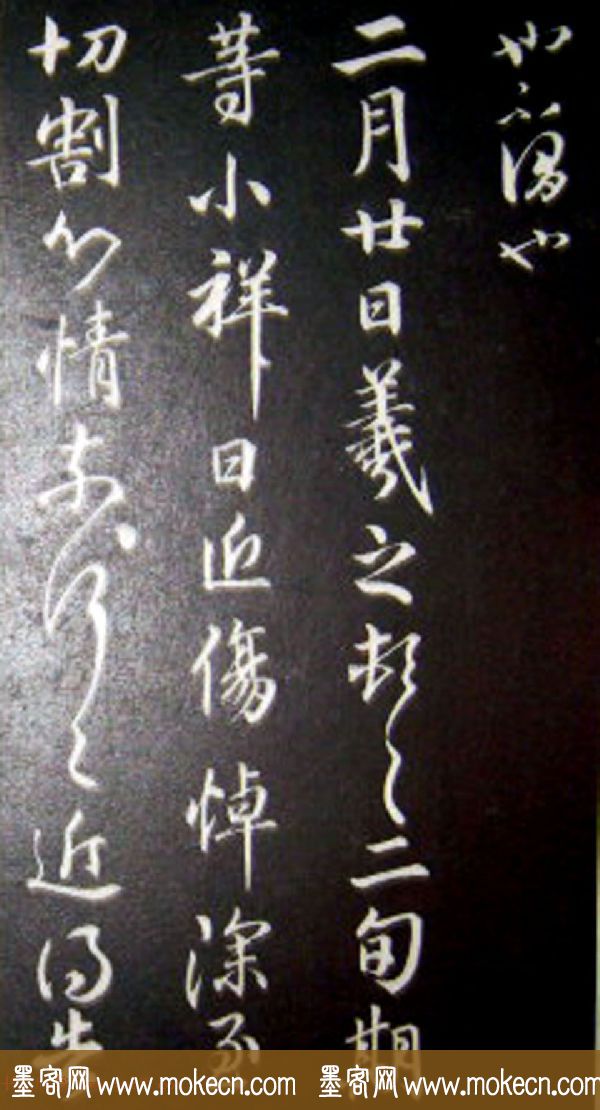 也
二月廿日羲之頓〻二旬期
等小祥日近傷悼深至
切割心情奈何〻近得
墨客网 www.mokecn.com 墨客网 www.mokecn.com